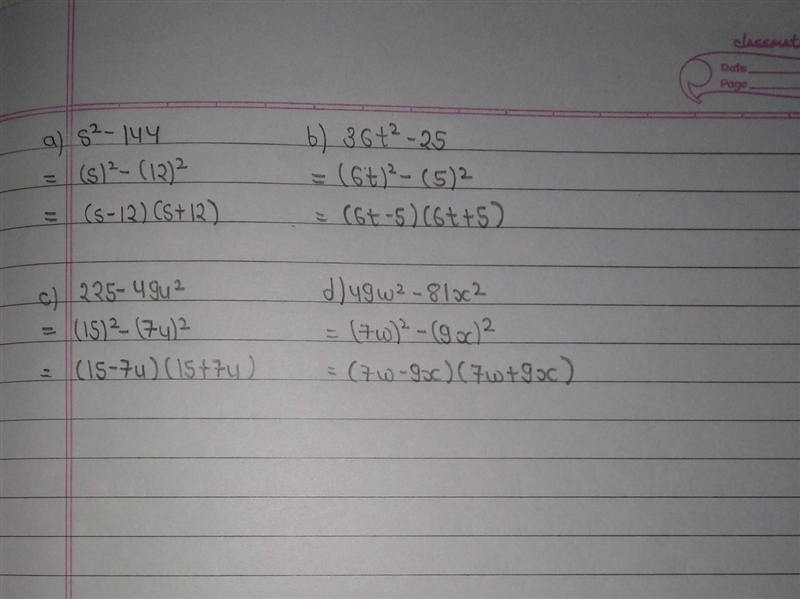 classmat
Date
Page
a) s² - 144
= (s)² - (12)²
= (s-12)(s+12)
b) 36t² - 25
= (6t)² - (5)²
= (6t-5)(6t+5)
c) 225 - 49u²
= (15)² - (7u)²
= (15-7u)(15+7u)
d) 49w² - 81x²
= (7w)² - (9x)²
= (7w-9x)(7w+9x)